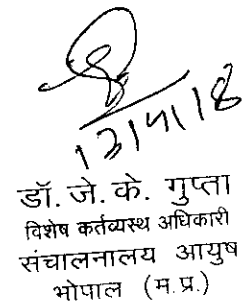 डॉ. जे. के. गुप्ता
विशेष कर्तव्यस्थ अधिकारी
संचालनालय आयुष
भोपाल (म.प्र.)